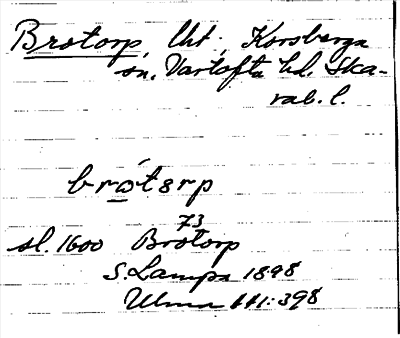 Brotorp, lht., Korsberga
sn. Vartofta hd. Ska-
rab. l.
brotorp
73
sl. 1600 Brotorp
S. Lampa 1898
Ulma 111:398